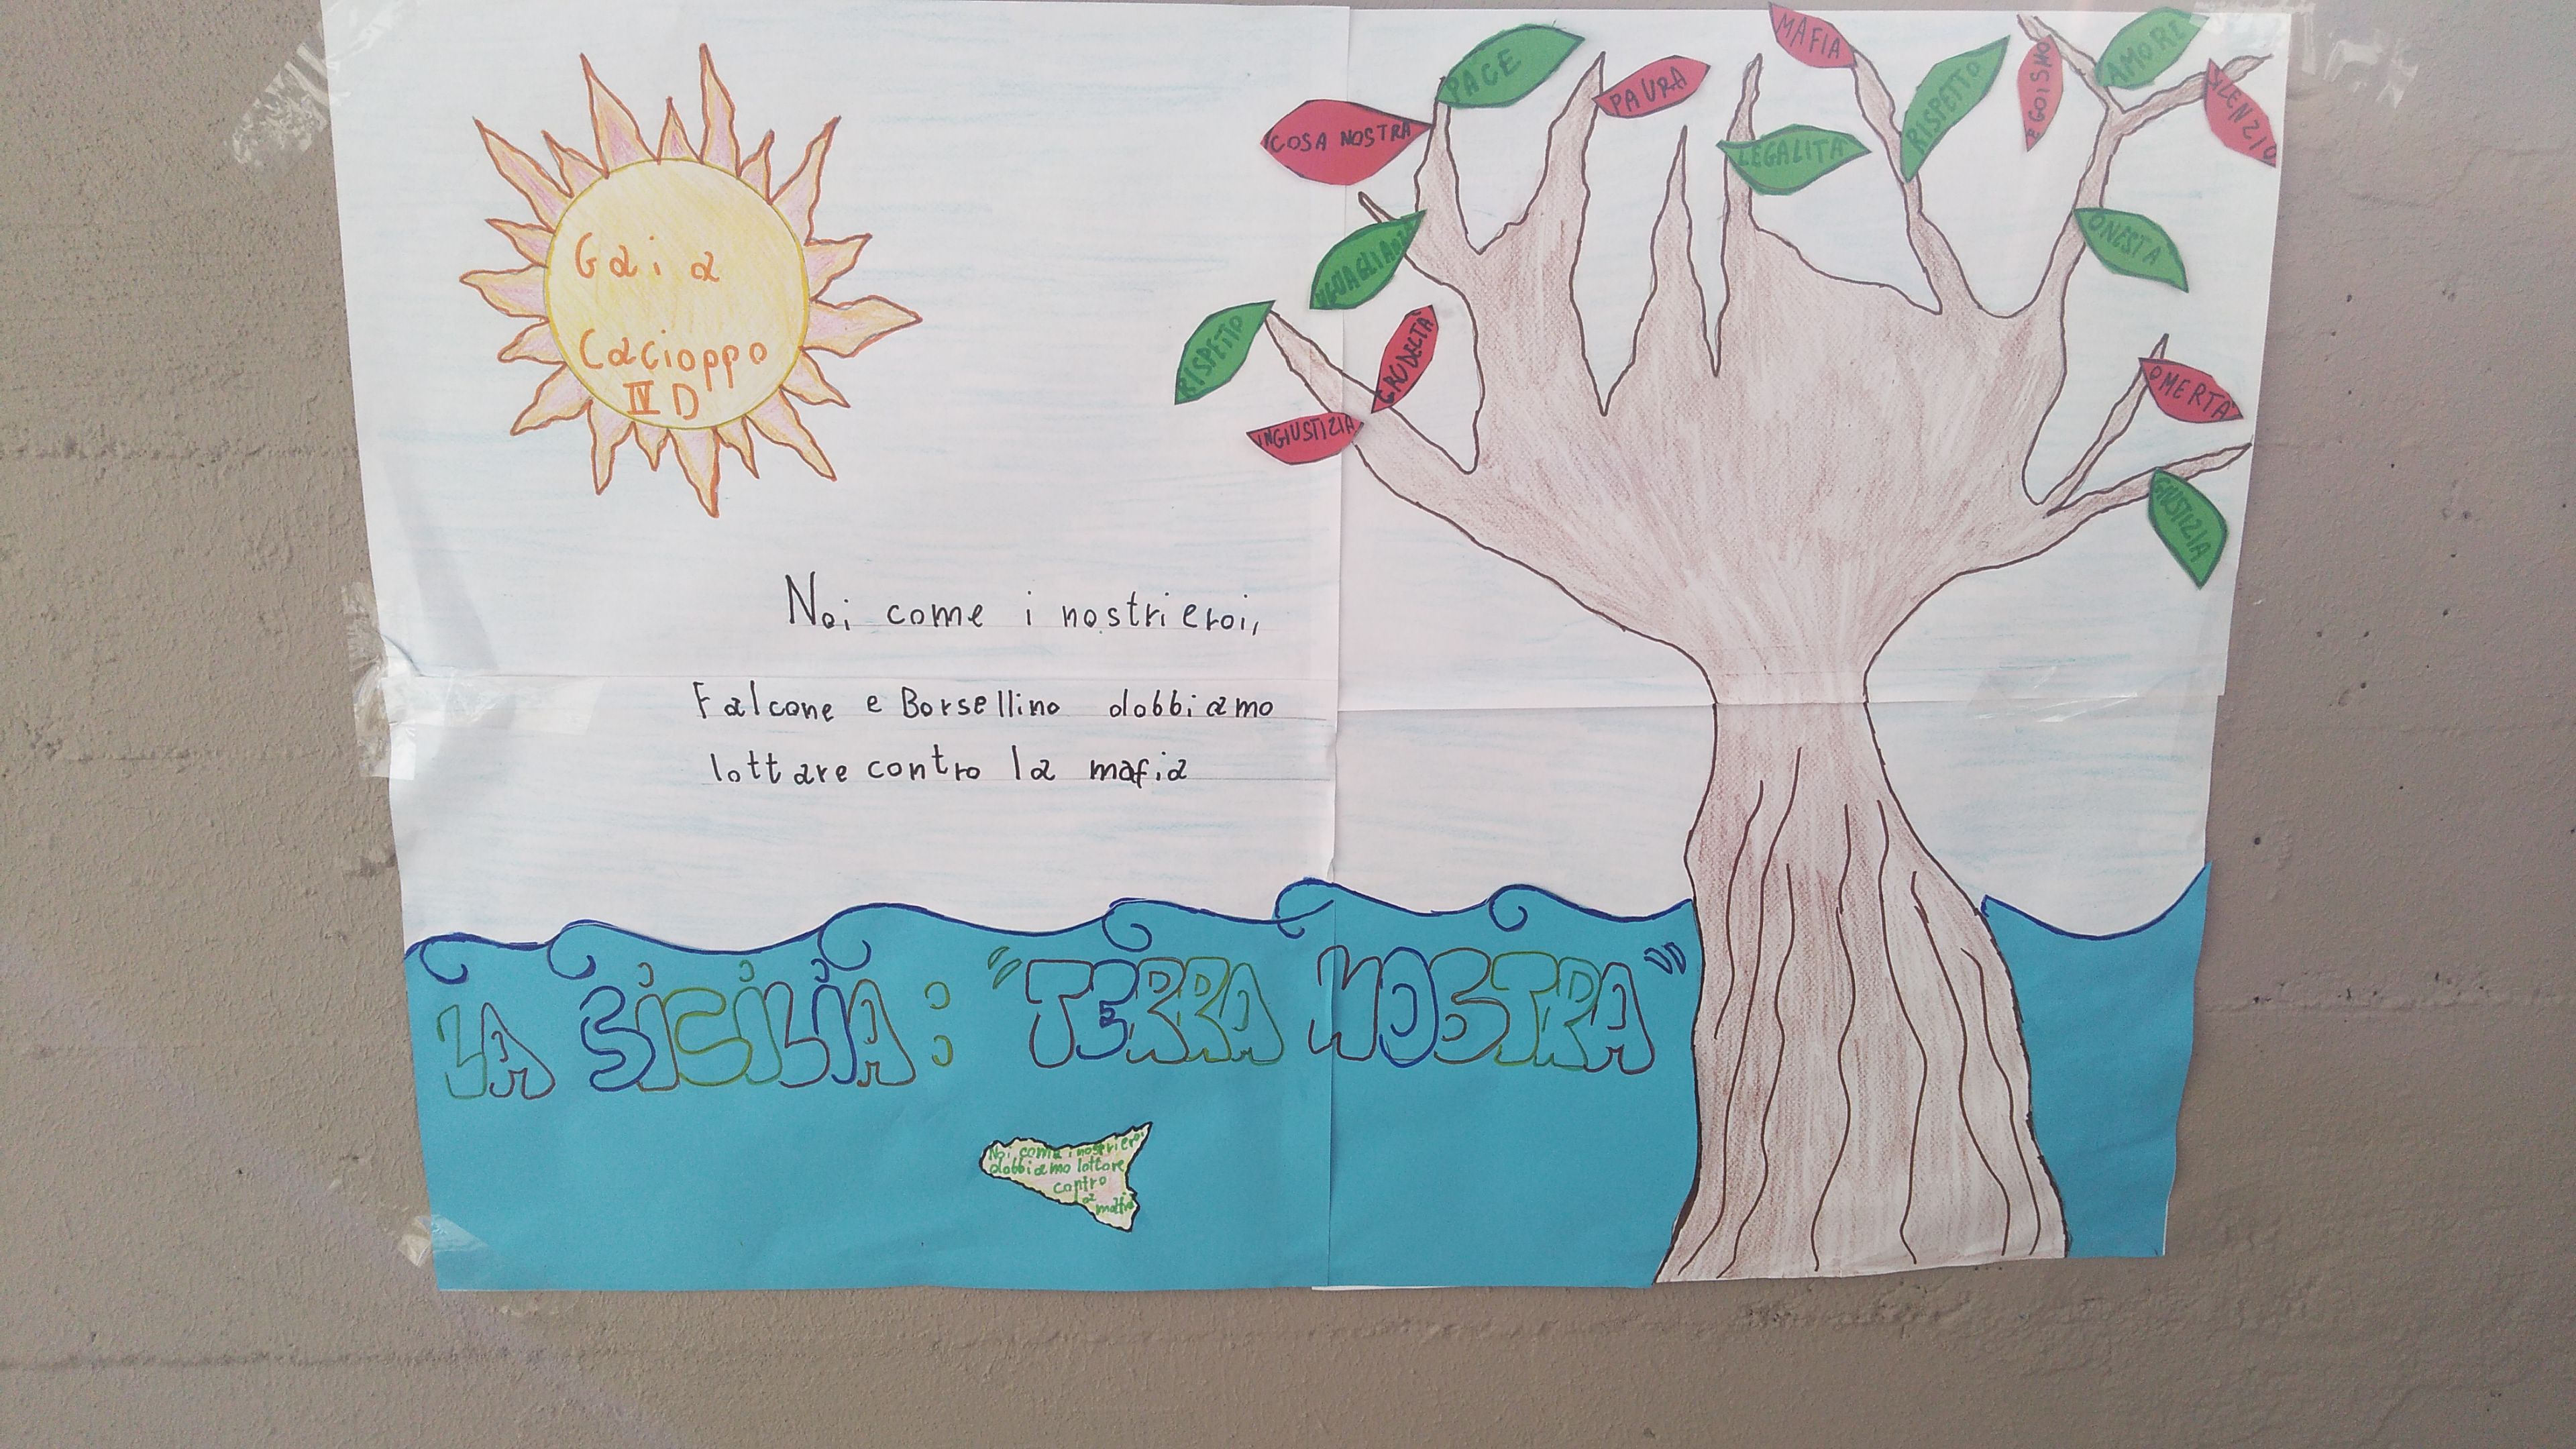 Gaia
Cacioppo
IV D
PACE
COSA NOSTRA
PAURA
MAFIA
RISPETTO
EGOISMO
AMORE
SILENZIO
LEGALITÀ
UGUAGLIANZA
ONESTÀ
RISPETTO
CRUDELTÀ
INGIUSTIZIA
OMERTA'
GIUSTIZIA
Noi come i nostri eroi,
Falcone e Borsellino dobbiamo
lottare contro la mafia
LA SICILIA: "TERRA NOSTRA"
Noi come i nostri eroi
dobbiamo lottare
contro
la
mafia